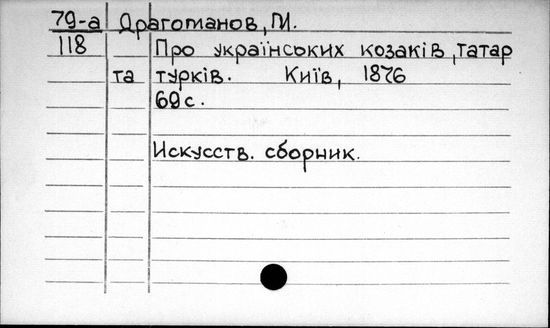 79-а Драгоманов, М.
118 Про українських козаків, татар
та турків. Київ, 1876
69 с.
Искусств. сборник.